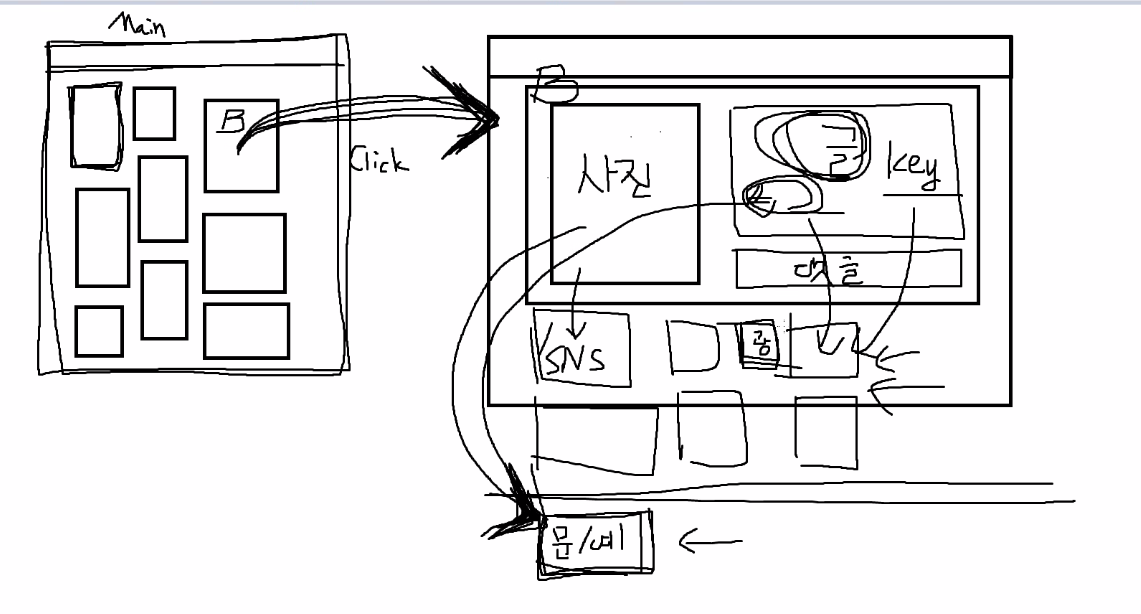 Main
B
Click
B
사진
글
key
댓글
SNS
광
문/예